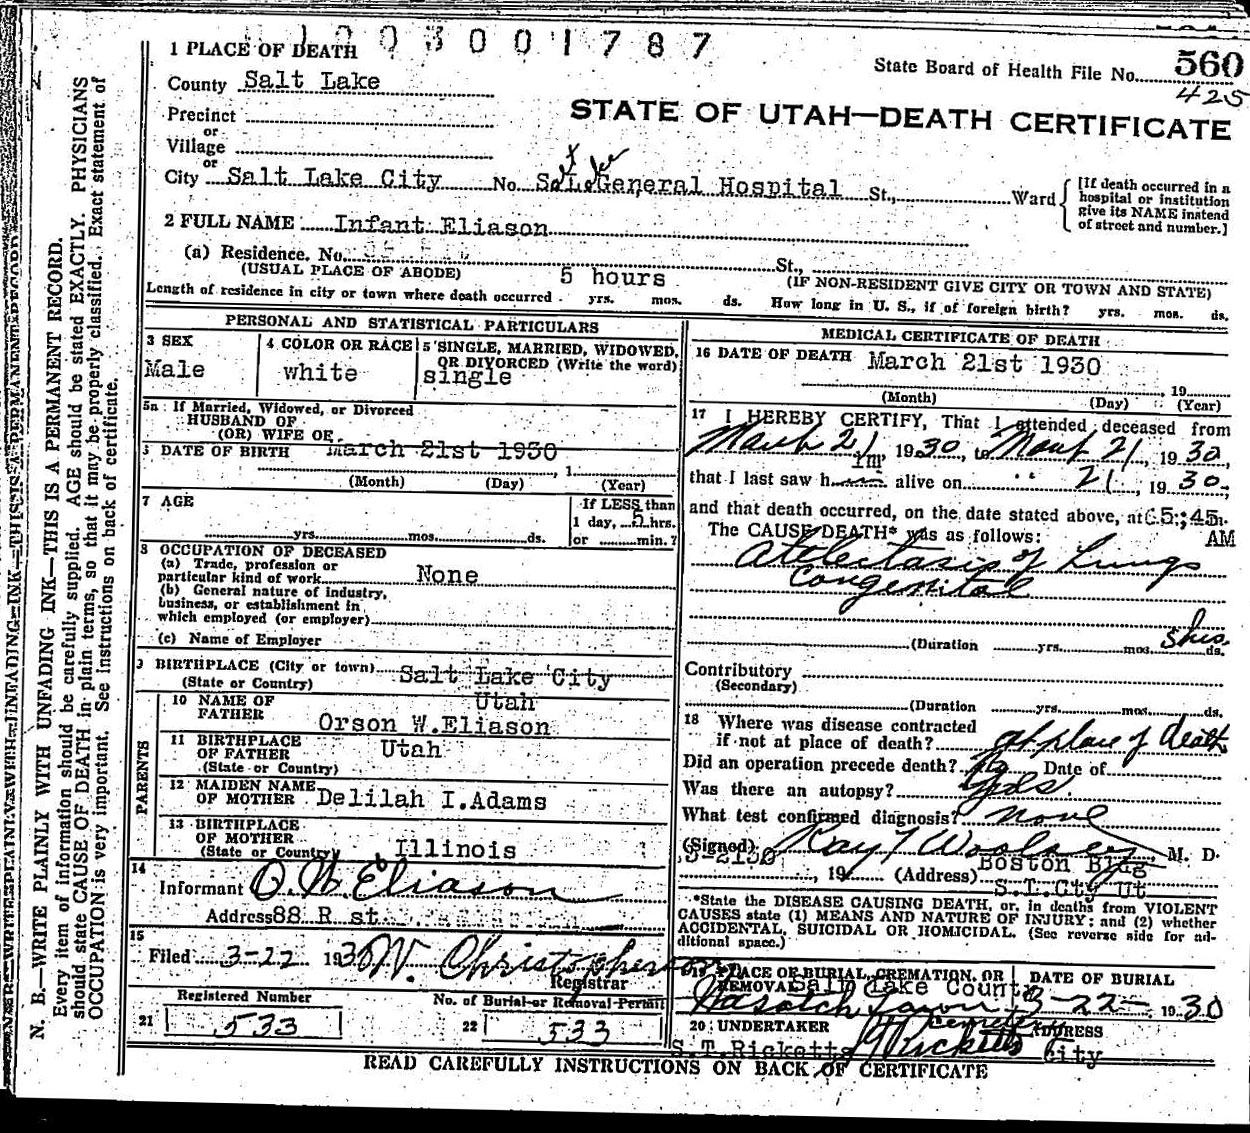 1003001787
State Board of Health File No. 560
425
STATE OF UTAH—DEATH CERTIFICATE
1 PLACE OF DEATH
County Salt Lake
Precinct
or
Village
or
City Salt Lake City No. General Hospital St., Ward
[If death occurred in a hospital or institution give its NAME instead of street and number.]
2 FULL NAME Infant Eliason
(a) Residence. No. St.,
(USUAL PLACE OF ABODE) (IF NON-RESIDENT GIVE CITY OR TOWN AND STATE)
5 hours
Length of residence in city or town where death occurred yrs. mos. ds. How long in U. S., if of foreign birth? yrs. mos. ds.
PERSONAL AND STATISTICAL PARTICULARS
3 SEX
Male
4 COLOR OR RACE
white
5 SINGLE, MARRIED, WIDOWED, OR DIVORCED (Write the word)
single
5a If Married, Widowed, or Divorced
HUSBAND OF
(OR) WIFE OF
DATE OF BIRTH March 21st 1930
, 1
(Month) (Day) (Year)
7 AGE
yrs. mos. ds.
If LESS than
1 day, 5 hrs.
or min.?
8 OCCUPATION OF DECEASED
(a) Trade, profession or
particular kind of work None
(b) General nature of industry,
business, or establishment in
which employed (or employer)
(c) Name of Employer
9 BIRTHPLACE (City or town) Salt Lake City
(State or Country) Utah
PARENTS
10 NAME OF FATHER Orson W.Eliason
11 BIRTHPLACE OF FATHER Utah
(State or Country)
12 MAIDEN NAME OF MOTHER Delilah I.Adams
13 BIRTHPLACE OF MOTHER
(State or Country) Illinois
14
Informant O. W. Eliason
Address 88 R st.
15
Filed 3-22 1930 W. Christopherson
Registrar
Registered Number
21 533
No. of Burial or Removal Permit
22 533
MEDICAL CERTIFICATE OF DEATH
16 DATE OF DEATH March 21st 1930
, 19
(Month) (Day) (Year)
17 I HEREBY CERTIFY, That I attended deceased from
March 21, 1930, to March 21, 1930,
that I last saw him alive on " 21, 1930;
and that death occurred, on the date stated above, at 5:45 m.
AM
The CAUSE DEATH* was as follows:
Atelectasis of Lungs
Congenital
5 hrs.
(Duration yrs. mos. ds.
Contributory
(Secondary)
(Duration yrs. mos. ds.
18 Where was disease contracted
if not at place of death? at place of death
Did an operation precede death? No Date of
Was there an autopsy? Yes.
What test confirmed diagnosis? none
(Signed) Ray T Woolsey, M. D.
3-2130
, 19 (Address) Boston Bldg
S.L.City Ut
*State the DISEASE CAUSING DEATH, or, in deaths from VIOLENT
CAUSES state (1) MEANS AND NATURE OF INJURY; and (2) whether
ACCIDENTAL, SUICIDAL OR HOMICIDAL. (See reverse side for ad-
ditional space.)
19 PLACE OF BURIAL, CREMATION, OR REMOVAL Salt Lake County
Wasatch Lawn Cemetery
DATE OF BURIAL
3-22- 1930
20 UNDERTAKER
S.T.Ricketts
ADDRESS
City
READ CAREFULLY INSTRUCTIONS ON BACK OF CERTIFICATE
N. B.—WRITE PLAINLY WITH UNFADING INK—THIS IS A PERMANENT RECORD.
Every item of information should be carefully supplied. AGE should be stated EXACTLY. PHYSICIANS
should state CAUSE OF DEATH in plain terms, so that it may be properly classified. Exact statement of
OCCUPATION is very important. See instructions on back of certificate.